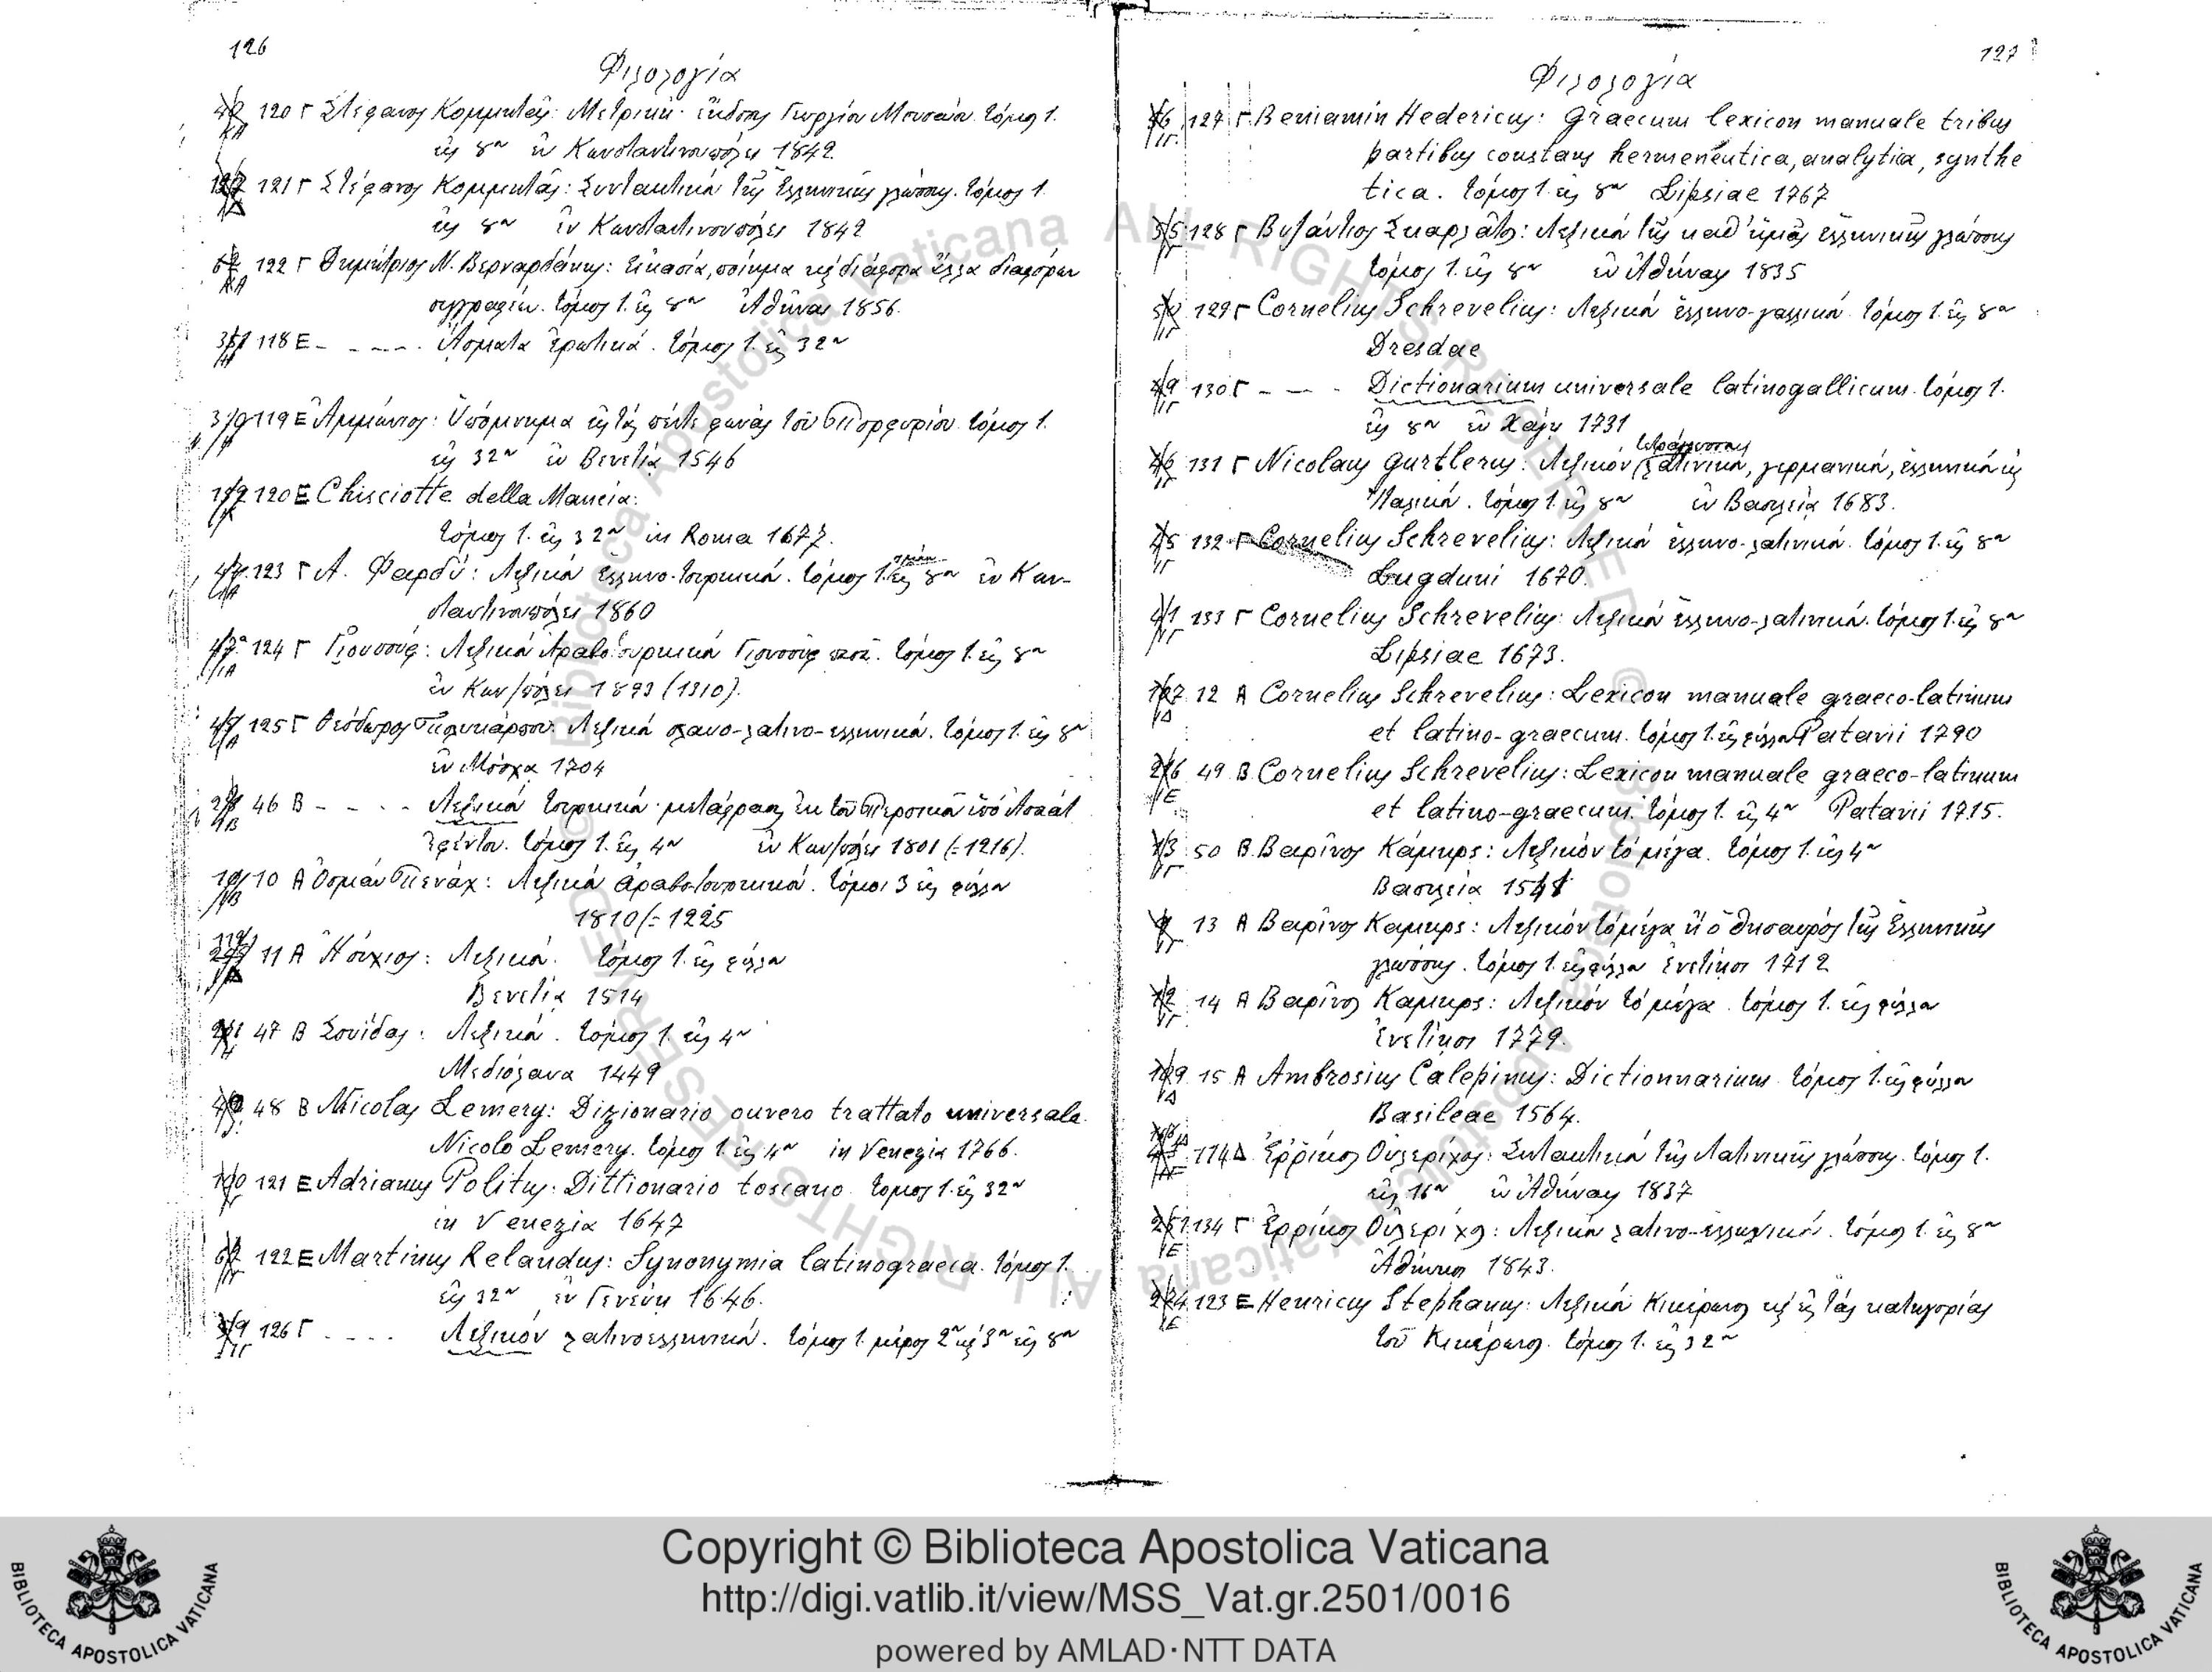 126
Φιλολογία
120 Γ Στέφανος Κομμητᾶς: Μετρική· ἔκδοσις Γεωργίου Μουσαίου. τόμος 1.
εἰς 8ον ἐν Κωνσταντινουπόλει 1842.
121 Γ Στέφανος Κομμητᾶς: Συντακτικόν τῆς Ἑλληνικῆς γλώσσης. τόμος 1.
εἰς 8ον ἐν Κωνσταντινουπόλει 1842
122 Γ Δημήτριος Ν. Βερναρδάκης: Εἰκασία, ποίημα καὶ διάφορα ἄλλα διαφόρων
συγγραφέων. τόμος 1. εἰς 8ον Ἀθῆναι 1856.
118 Ε - - - - - Ἄσματα ἐρωτικά. τόμος 1. εἰς 32ον
119 Ε Ἀμμώνιος: Ὑπόμνημα εἰς τὰς πέντε φωνὰς τοῦ Πορφυρίου. τόμος 1.
εἰς 32ον ἐν Βενετίᾳ 1546
120 Ε Chisciotte della Mancia.
τόμος 1. εἰς 32ον in Roma 1677.
123 Γ Α. Φαρδύ: Λεξικόν ἑλληνο-τουρκικόν. τόμος 1. εἰς 8ον ἐν Κων-
σταντινουπόλει 1860
124 Γ Γιουσούφ: Λεξικόν Ἀραβοτουρκικόν Γιουσούφ πασᾶ. τόμος 1. εἰς 8ον
ἐν Κων/πόλει 1893 (1310).
125 Γ Θεόδωρος Πολυκάρπου: Λεξικόν σλαβο-λατινο-ελληνικόν. τόμος 1. εἰς 8ον
ἐν Μόσχᾳ 1704
46 Β - - - - Λεξικόν τουρκικόν· μετάφρασις ἐκ τοῦ Περσικοῦ ὑπό
ἐφέντου. τόμος 1. εἰς 4ον ἐν Κων/πόλει 1801 (=1216).
10 Α Ὀσμάν Πενάχ: Λεξικόν ἀραβο-τουρκικόν. τόμοι 3 εἰς φύλλον
1810/=1225
11 Α Ἡσύχιος: Λεξικόν. τόμος 1. εἰς φύλλον
Βενετία 1514
47 Β Σουίδας: Λεξικόν. τόμος 1. εἰς 4ον
Μεδιόλανα 1449
48 Β Nicolas Lemery: Dizionario ouvero trattato universale
Nicolò Lemery. τόμος 1. εἰς 4ον in Venezia 1766.
121 Ε Adrianus Politus: Dittionario toscano. τόμος 1. εἰς 32ον
in Venezia 1647
122 Ε Martinus Relandus: Synonymia latinograeca. τόμος 1.
εἰς 32ον ἐν Γενεύῃ 1646.
126 Γ - - - - Λεξικόν λατινοελληνικόν. τόμος 1. μέρος 2ον καὶ 3ον εἰς 8ον
127
Φιλολογία
127 Γ Beniamin Hedericus: Graecum lexicon manuale tribus
partibus constans hermeneutica, analytica, synthe
tica. τόμος 1. εἰς 8ον Lipsiae 1767
128 Γ Βυζάντιος Σκαρλᾶτος: Λεξικόν τῆς καθ' ἡμᾶς ἑλληνικῆς γλώσσης
τόμος 1. εἰς 8ον ἐν Ἀθήναις 1835
129 Γ Cornelius Schrevelius: Λεξικόν ἑλληνο-γαλλικόν. τόμος 1. εἰς 8ον
Dresdae
130 Γ - - - Dictionarium universale latinogallicum. τόμος 1.
εἰς 8ον ἐν Χάγῃ 1731
131 Γ Nicolaus Gurtlerus: Λεξικόν τετράγλωσσον (λατινικόν, γερμανικόν, ἑλληνικόν
Ἰταλικόν. τόμος 1. εἰς 8ον ἐν Βασιλείᾳ 1683.
132 Γ Cornelius Schrevelius: Λεξικόν ἑλληνο-λατινικόν. τόμος 1. εἰς 8ον
Lugduni 1670.
133 Γ Cornelius Schrevelius: Λεξικόν ἑλληνο-λατινικόν. τόμος 1. εἰς 8ον
Lipsiae 1673.
12 Α Cornelius Schrevelius: Lexicon manuale graeco-latinum
et latino-graecum. τόμος 1. εἰς φύλλον Patavii 1790
49 Β Cornelius Schrevelius: Lexicon manuale graeco-latinum
et latino-graecum. τόμος 1. εἰς 4ον Patavii 1715.
50 Β Βαρῖνος Κάμηρς: Λεξικόν τό μέγα. τόμος 1. εἰς 4ον
Βασιλεία
13 Α Βαρῖνος Κάμηρς: Λεξικόν τό μέγα ἤ ὁ θησαυρός τῆς Ἑλληνικῆς
γλώσσης. τόμος 1. εἰς φύλλον Ἐνετίησι 1712
14 Α Βαρῖνος Κάμηρς: Λεξικόν τό μέγα. τόμος 1. εἰς φύλλον
Ἐνετίησι 1779.
15 Α Ambrosius Calepinus: Dictionnarium. τόμος 1. εἰς φύλλον
Basileae 1564.
114 Δ Ἐρρῖκος Οὐλερίχος: Συντακτικόν τῆς Λατινικῆς γλώσσης. τόμος 1.
εἰς 16ον ἐν Ἀθήναις 1837
134 Γ Ἐρρῖκος Οὐλερίχος: Λεξικόν λατινο-ελληνικόν. τόμος 1. εἰς 8ον
Ἀθήνησι 1843.
123 Ε Henricus Stephanus: Λεξικόν Κικέρωνος καὶ εἰς τάς κατηγορίας
τοῦ Κικέρωνος. τόμος 1. εἰς 32ον
Copyright © Biblioteca Apostolica Vaticana
http://digi.vatlib.it/view/MSS_Vat.gr.2501/0016
powered by AMLAD·NTT DATA
BIBLIOTECA APOSTOLICA VATICANA
BIBLIOTECA APOSTOLICA VATICANA